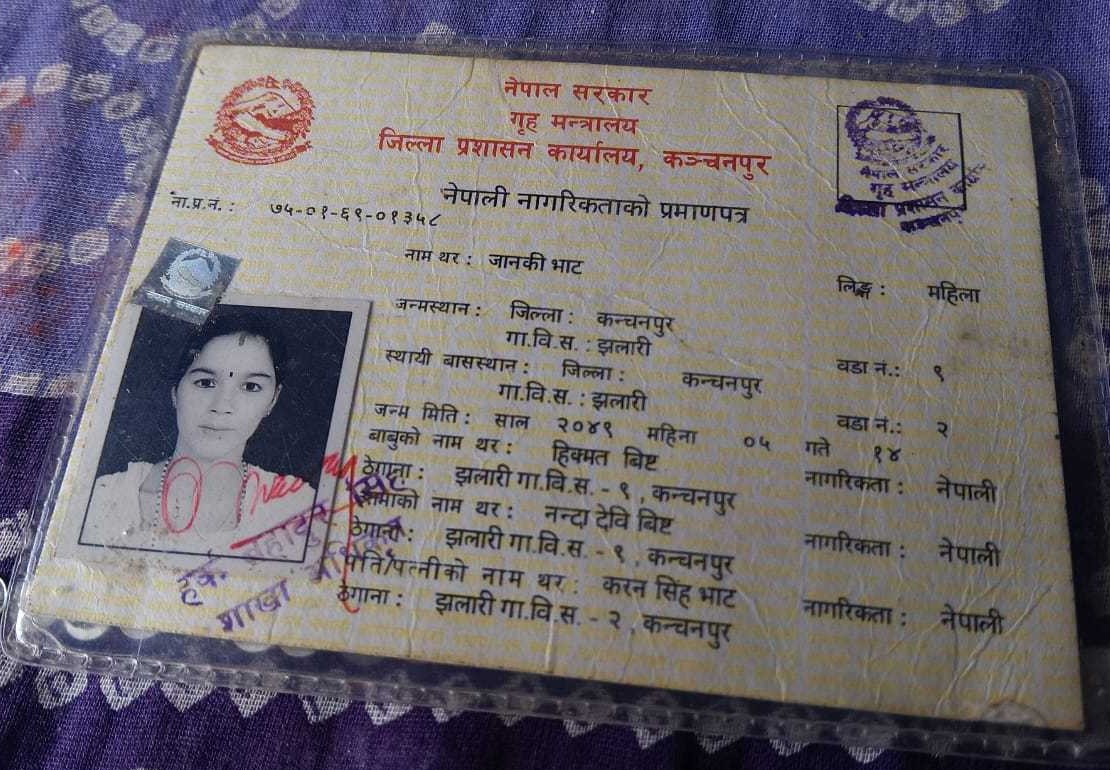 नेपाल सरकार
गृह मन्त्रालय
जिल्ला प्रशासन कार्यालय, कञ्चनपुर
नेपाल सरकार
गृह मन्त्रालय
जिल्ला प्रशासन कार्यालय
कञ्चनपुर
नेपाली नागरिकताको प्रमाणपत्र
ना.प्र.नं. : ७५-०१-६९-०१३५८
नाम थर : जानकी भाट
लिङ्ग : महिला
जन्मस्थान : जिल्ला : कन्चनपुर
गा.वि.स. : झलारी वडा नं.: ९
स्थायी बासस्थान : जिल्ला : कन्चनपुर
गा.वि.स. : झलारी वडा नं.: २
जन्म मिति : साल २०४९ महिना ०५ गते १४
बाबुको नाम थर : हिक्मत बिष्ट
ठेगाना : झलारी गा.वि.स. - ९ , कन्चनपुर नागरिकता : नेपाली
आमाको नाम थर : नन्दा देवि बिष्ट
ठेगाना : झलारी गा.वि.स. - ९ , कन्चनपुर नागरिकता : नेपाली
पति/पत्नीको नाम थर : करन सिंह भाट
ठेगाना : झलारी गा.वि.स. - २ , कन्चनपुर नागरिकता : नेपाली
शाखा